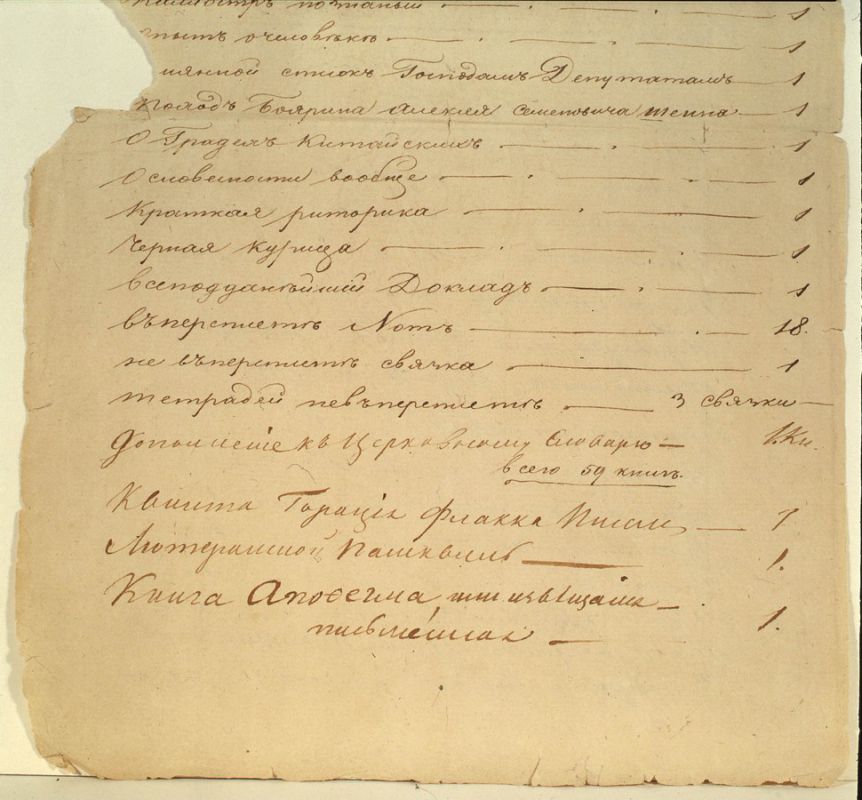 познаный — 1
опытъ о человѣкѣ — 1
имянной списокъ Господамъ Депутатамъ — 1
Походъ Боярина Алексея Семеновича Шеина — 1
О Градехъ Китайскихъ — 1
О словесности вообще — 1
Краткая риторика — 1
Черная курица — 1
Всеподданѣйшій Докладъ — 1
въ переплетѣ Нотъ — 18.
не въ переплетѣ связка — 1
тетрадей не въ переплетѣ — 3 связки —
Дополнение къ Церковному Словарю — 1. Кн.
всего 59 книгъ.
Квинта Горація Флакка Писм — 1
Лютеранской Пашквиль — 1.
Книга Апоѳегма или
письменная — 1.